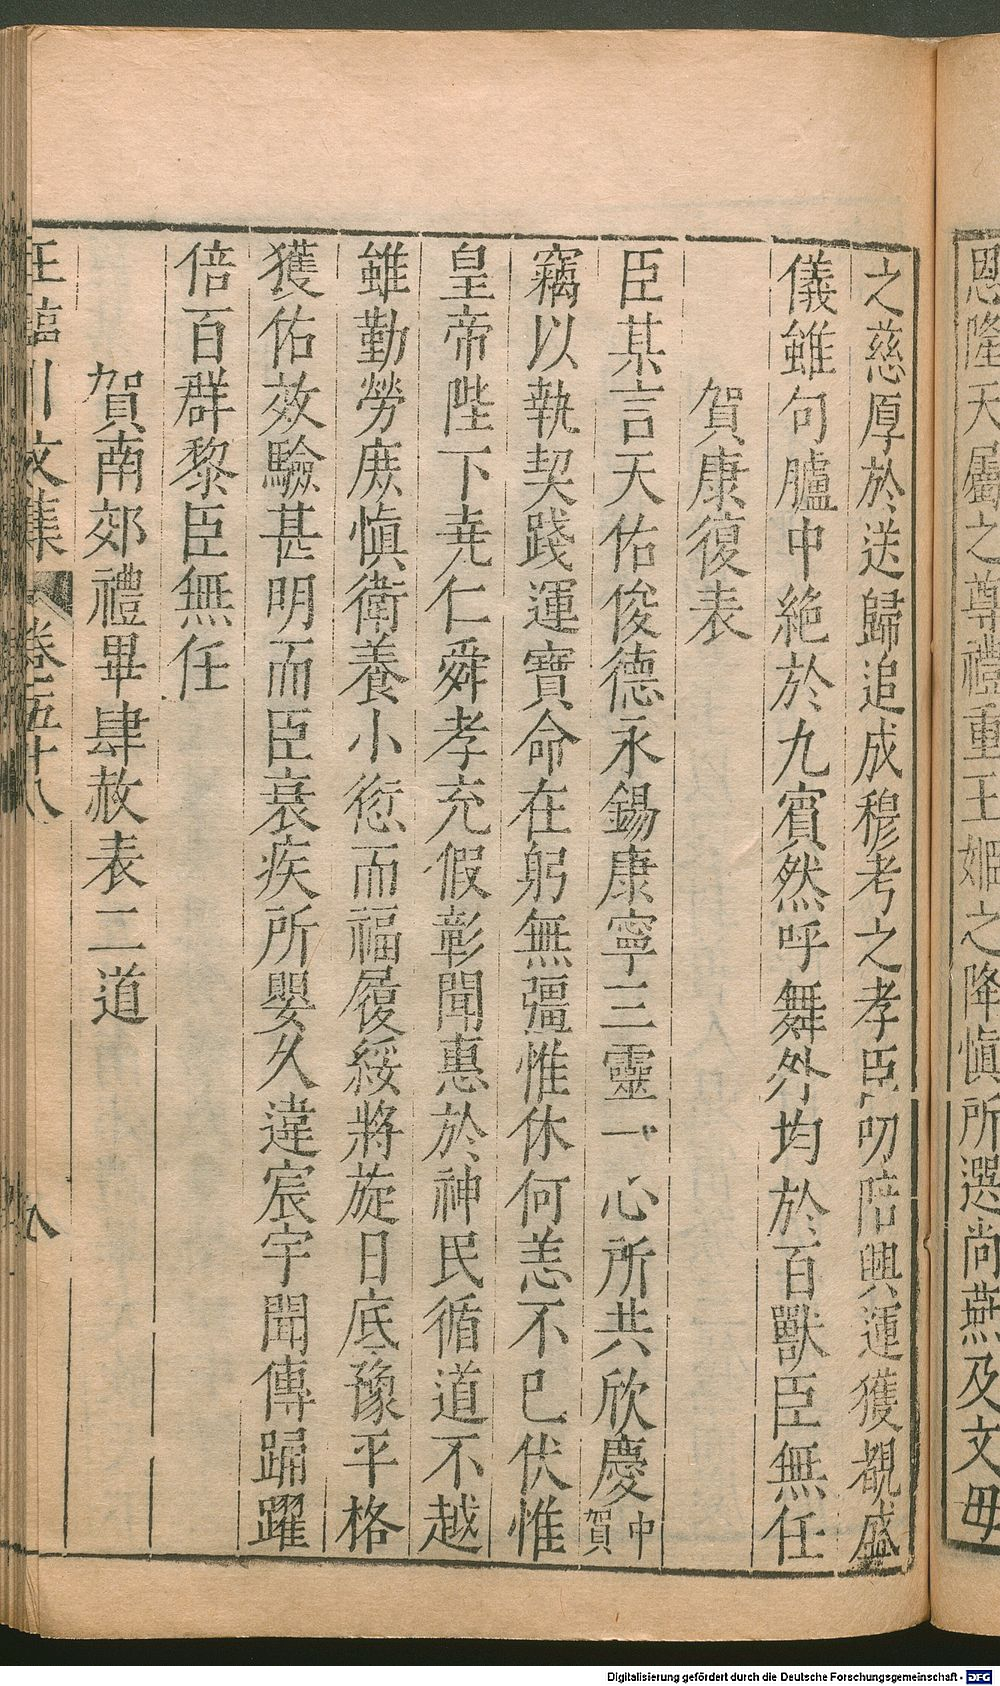 恩隆天屬之尊禮重王姬之降慎所選尚燕及文母
之慈厚於送歸追成穆考之孝臣叨陪興運獲覩盛
儀雖句臚中絶於九賓然呼舞外均於百獸臣無任
賀康復表
臣某言天佑俊德永錫康寧三靈一心所共欣慶中賀
竊以執契踐運寶命在躬無彊惟休何恙不已伏惟
皇帝陛下堯仁舜孝充假彰聞惠於神民循道不越
雖勤勞庶慎衛養小愆而福履綏將旋日底豫平格
獲佑效驗甚明而臣衰疾所嬰久違宸宇聞傳踊躍
倍百群黎臣無任
賀南郊禮畢肆赦表二道
王臨川文集 卷五十八 八
Digitalisierung gefördert durch die Deutsche Forschungsgemeinschaft - DFG